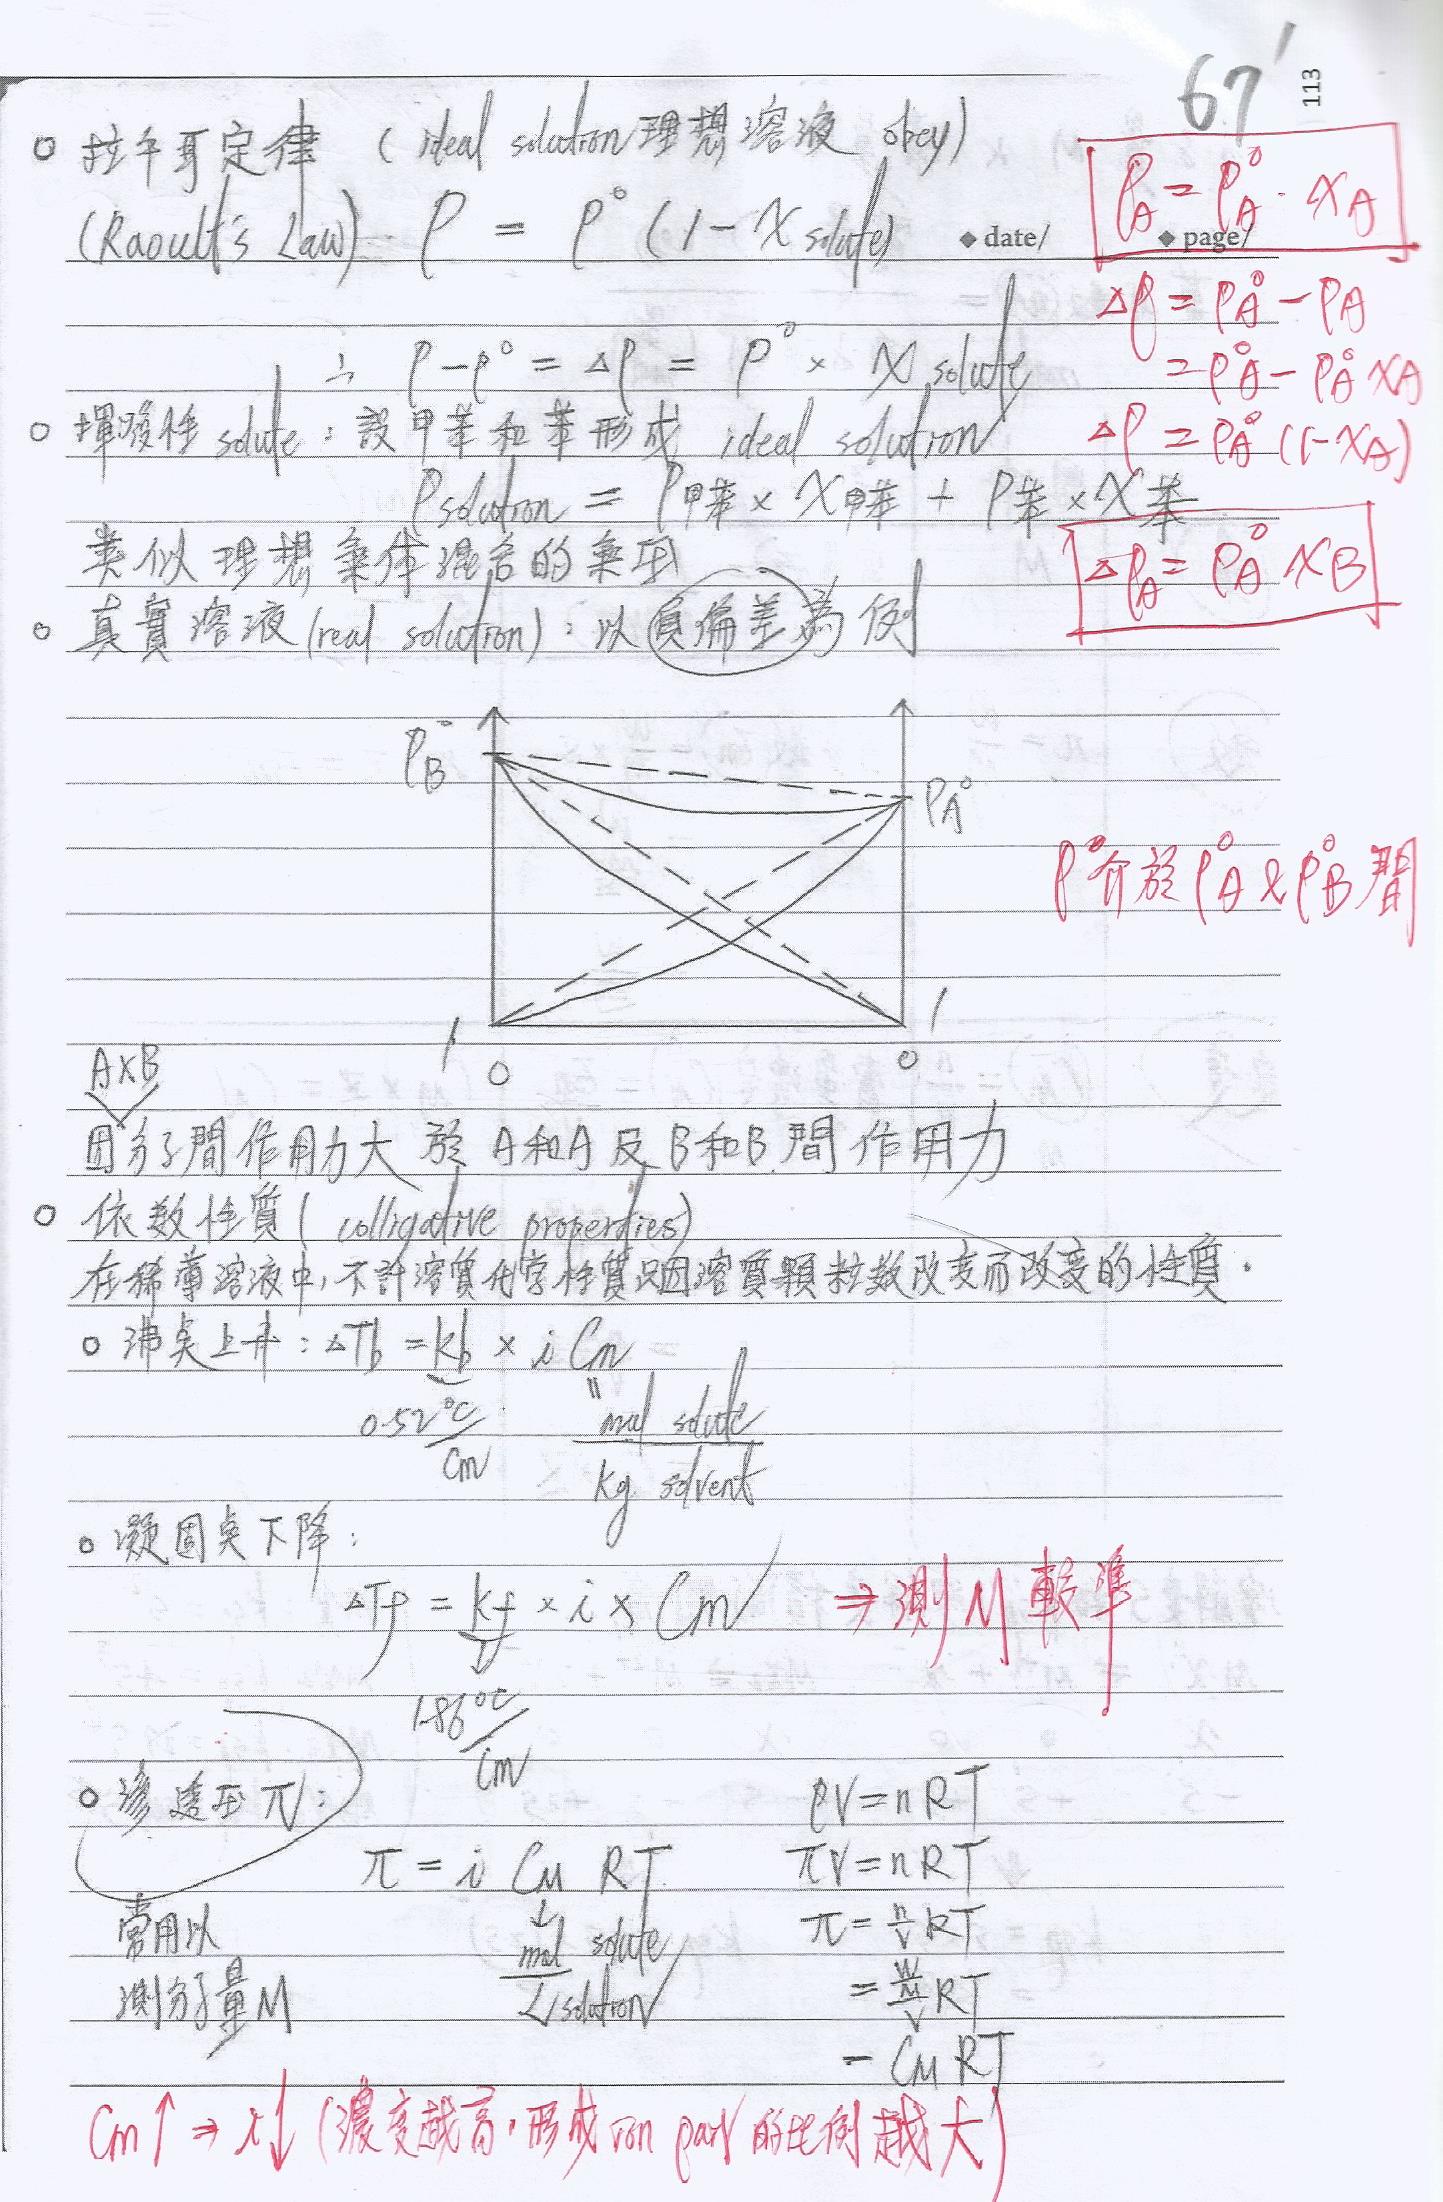 67'
113
拉午耳定律 (ideal solution理想溶液 obey)
(Raoult's Law) P = P° (1 - X solute)
◆ date/ ◆ page/
P_A = P_A° · X_A
∴ P - P° = ΔP = P° × X solute
ΔP = P_A° - P_A
= P_A° - P_A° X_A
ΔP = P_A° (1 - X_A)
ΔP_A = P_A° X_B
揮發性 solute : 設甲苯和苯形成 ideal solution
P solution = P甲苯 × X甲苯 + P苯 × X苯
類似理想氣体混合的氣压
真實溶液 (real solution) : 以負偏差為例
P_B°
P_A°
P° 介於 P_A° & P_B° 間
1 0 0 1
A×B
因分子間作用力大於 A和A 及 B和B 間作用力
依數性質 (colligative properties)
在稀薄溶液中, 不計溶質化学性質只因溶質顆粒数改变而改变的性質.
沸点上升 : ΔTb = kb × i Cm
0.52 °C/Cm
" mol solute / kg solvent
凝固点下降 :
ΔTf = kf × i × Cm ⇒ 測M較準
1.86 °C/Cm
滲透压 π :
PV = nRT
π = i C_M RT
πV = nRT
常用以
測分子量M
mol solute / L solution
π = n/V RT
= W/M / V RT
= C_M RT
Cm↑ ⇒ i↓ (濃度越高, 形成 ion pair 的比例越大)